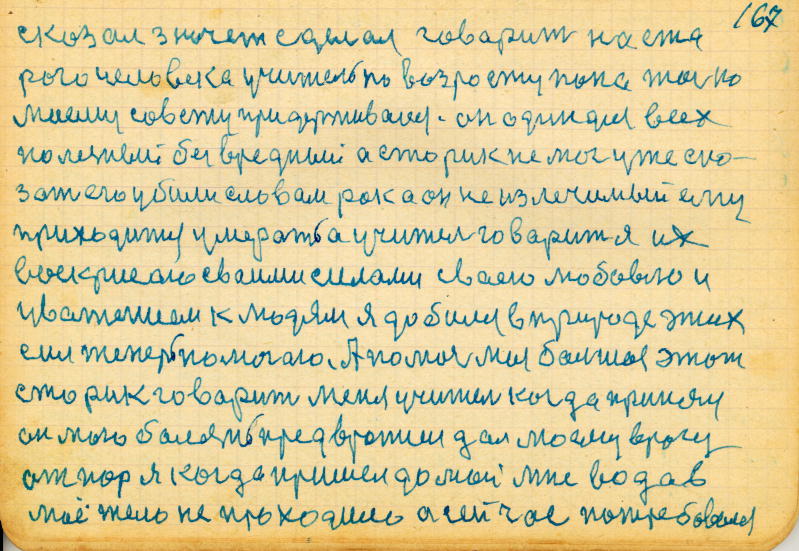 167
сказал значет сделал говарит на ста
рого человека учитель по возросту пока таг по
моему совету придерживался. он один для всех
полезный без вредный а сторик не мог уже ска-
зат его убили словам рока он не излечимый ему
приходится умерать а учител говарит я их
воскрисаю сваими силами сваею любовью и
уважением к людям я добился в природе этих
сил теперь помогаю. А помоч моя большая этот
сторик говарит меня учител когда принял
он мою болезнь предвротил дал моему врогу
отпор я когда пришел домой мне вода в
моё тело не проходило а сейчас потребовался